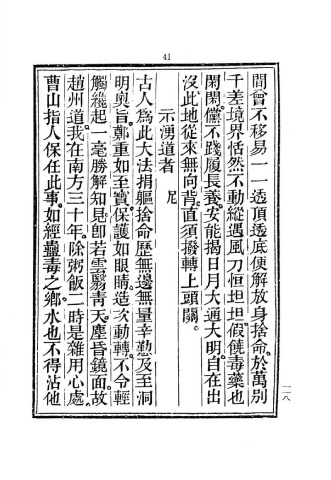 41
間曾不移易一一透頂透底便解放身捨命於萬別
千差境界恬然不動縱遇風刀恒坦坦假饒毒藥也
閑閑儻不踐履長養安能揭日月大通大明自在出
沒此地從來無向背直須撥轉上頭關。
示湧道者 尼
古人為此大法捐軀捨命歷無邊無量辛勤及至洞
明奧旨鄭重如至寶保護如眼睛造次動轉不令輕
觸纔起一毫勝解知見卽若雲翳青天塵昏鏡面故
趙州道我在南方三十年除粥飯二時是雜用心處
曹山指人保任此事如經蠱毒之鄉水也不得沾他
一一八